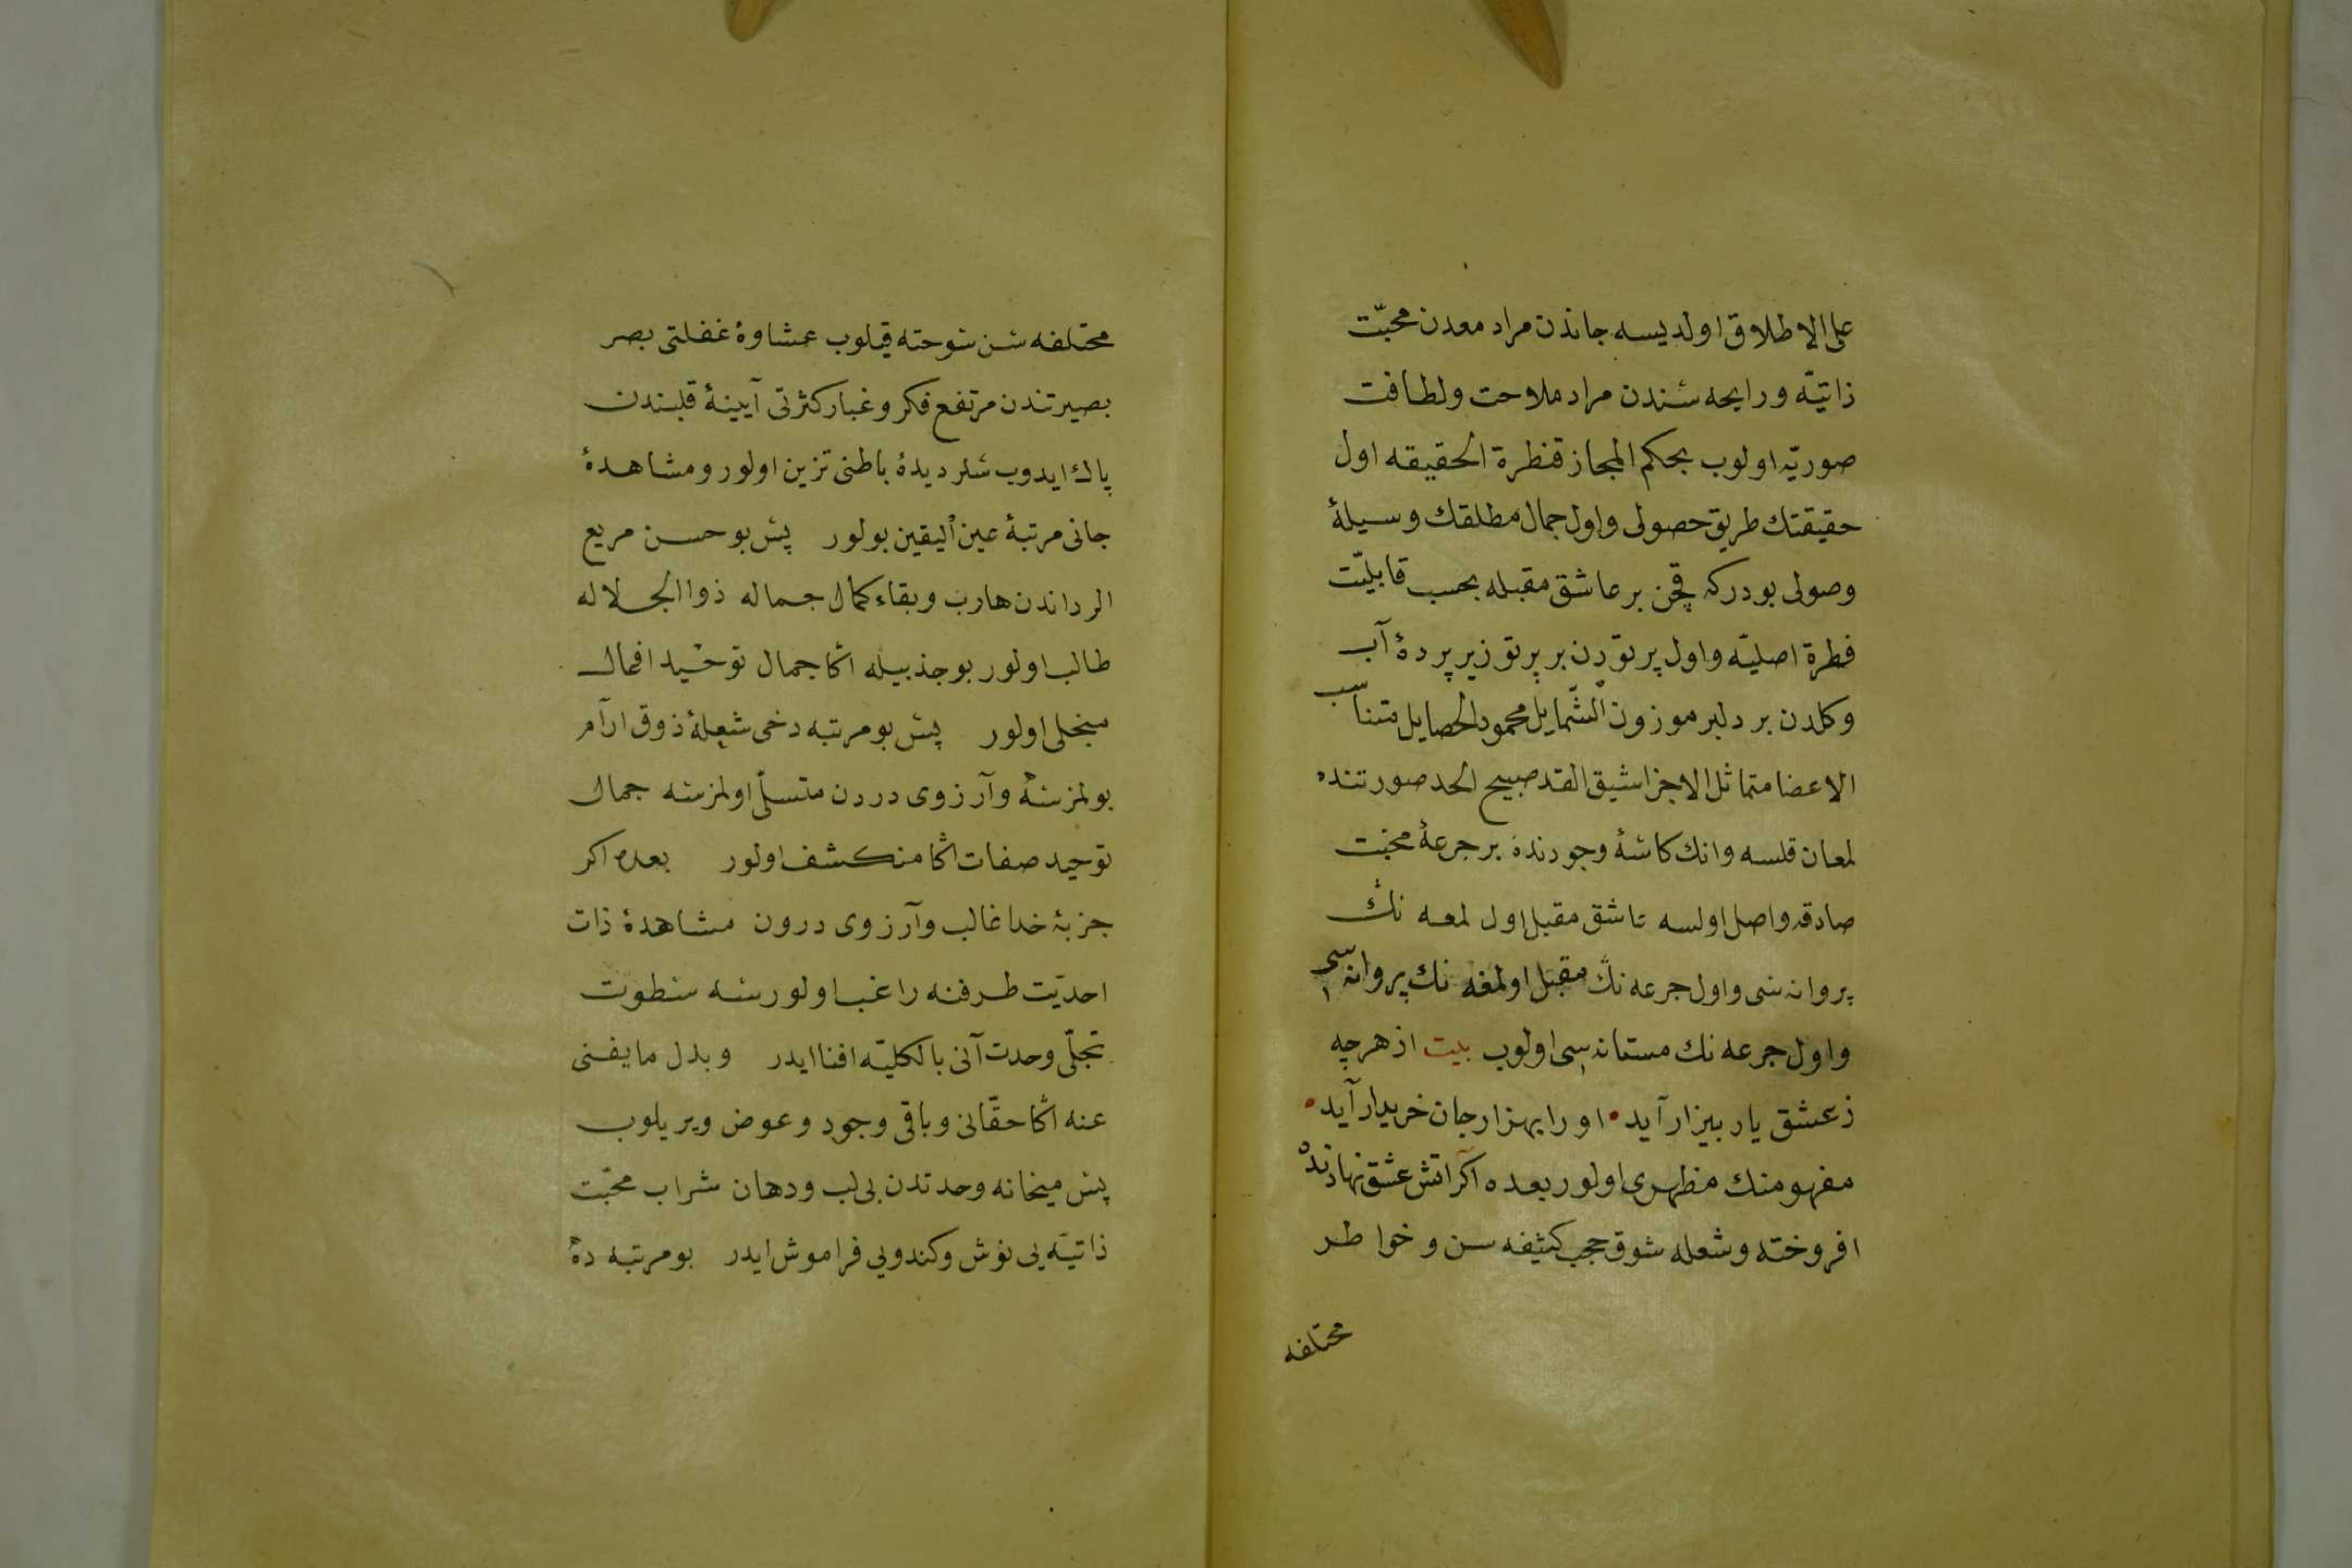 على الاطلاق اولديسه جاندن مراد معدن محبّت
ذاتيّه ورايحه سندن مراد ملاحت ولطافت
صوريّه اولوب بحكم المجاز قنطرة الحقيقه اول
حقيقتك طريق حصولى واول جمال مطلقك وسيلهٔ
وصولى بودركه قچن بر عاشق مقبله بحسب قابليّت
فطرة اصليّه واول پرتودن بر پرتو زير پردهٔ آب
وكلدن بر دلبر موزون الشّمايل محمود الخصايل متناسب
الاعضا متماثل الاجزا شيق القد صبيح الخد صورتنده
لمعان قلسه وانك كاشهٔ وجودنده بر جرعهٔ محبّت
صادقه واصل اولسه عاشق مقبل اول لمعه نك
پروانه سى واول جرعه نك مقبل اولمغه نك پروانه سى
واول جرعه نك مستانه سى اولوب بيت از هرچه
ز عشق يار بيزار آيد • او را بهزار جان خريدار آيد •
مفهومنك مظهرى اولور بعده اكر اتش عشق نهادنده
افروخته وشعله شوق حجب كثيفه سن وخواطر
مختلفه
مختلفه سن سوخته قيلوب غشاوهٔ غفلتى بصر
بصيرتندن مرتفع فكر وغبار كثرتى آيينهٔ قلبندن
پاك ايدوب شلر ديدهٔ باطنى تزين اولور ومشاهدهٔ
جانى مرتبهٔ عين اليقين بولور پس بو حسن مريع
الرداندن هارب وبقاء كمال جماله ذوالجلاله
طالب اولور بو جذبيله اكا جمال توحيد افعال
منجلى اولور پس بو مرتبه دخى شعلهٔ ذوق ارآم
بولمزسه وآرزوى دردن متسلّى اولمزسه جمال
توحيد صفات اكا منكشف اولور بعده اكر
جزبهٔ خدا غالب وآرزوى درون مشاهدهٔ ذات
احديّت طرفنه راغب اولورسه سطوت
تجلّى وحدت آنى بالكليّه افنا ايدر وبدل ما يفنى
عنه اكا حقّانى وباقى وجود وعوض ويريلوب
پس ميخانه وحدتدن بى لب ودهان شراب محبّت
ذاتيّه يى نوش وكندويى فراموش ايدر بو مرتبه ده